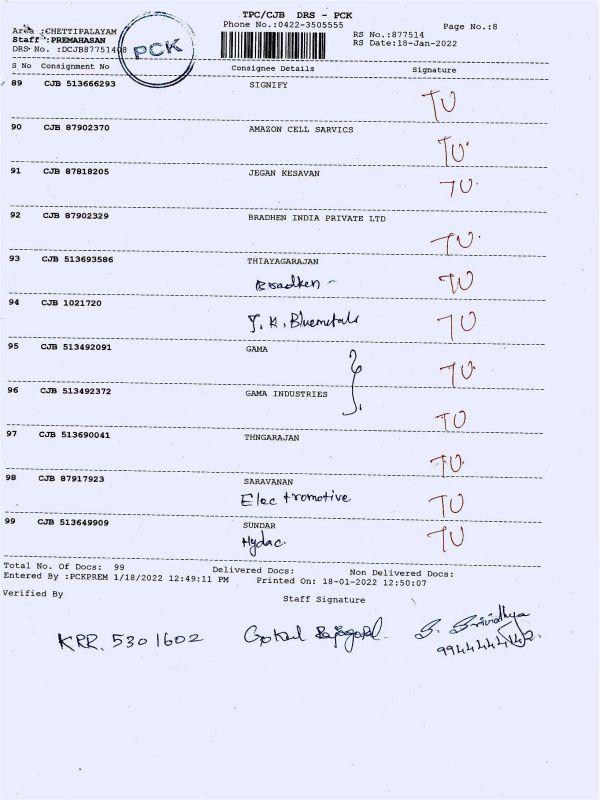 TPC/CJB DRS - PCK
Phone No.:0422-3505555
Page No.:8
Area :CHETTIPALAYAM
Staff :PREMAHASAN
DRS No. :DCJB877514 8
PCK
RS No.:877514
RS Date:18-Jan-2022
S No Consignment No Consignee Details Signature
89 CJB 513666293 SIGNIFY
TU
90 CJB 87902370 AMAZON CELL SARVICS
TU
91 CJB 87818205 JEGAN KESAVAN
TU
92 CJB 87902329 BRADHEN INDIA PRIVATE LTD
TU
93 CJB 513693586 THIAYAGARAJAN
Bradken - TU
94 CJB 1021720
J. K. Bluemetals TU
95 CJB 513492091 GAMA
TU
96 CJB 513492372 GAMA INDUSTRIES
TU
97 CJB 513690041 THNGARAJAN
TU
98 CJB 87917923 SARAVANAN
Electromotive TU
99 CJB 513649909 SUNDAR
Hydac. TU
Total No. Of Docs: 99 Delivered Docs: Non Delivered Docs:
Entered By :PCKPREM 1/18/2022 12:49:11 PM Printed On: 18-01-2022 12:50:07
Verified By
Staff Signature
KRR. 5301602 Gokul Rajagopal. S. Srividhya